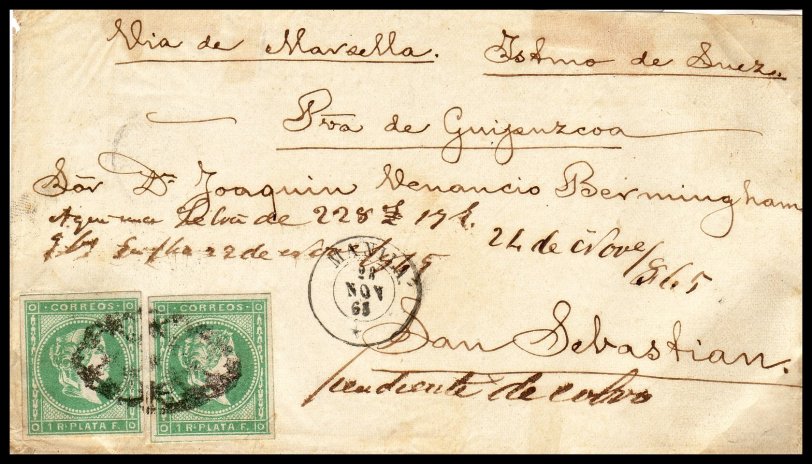 Via de Marsella. Istmo de Suez.
Pva de Guipuzcoa
Sõr Dn Joaquin Venancio Bermingham
Aqui una de 228 17
24 de Nove/865
22 de
MANILA
28
NOV
65
San Sebastian.
pendiente de cobro
CORREOS CORREOS
1 Rl PLATA F. 1 Rl PLATA F.